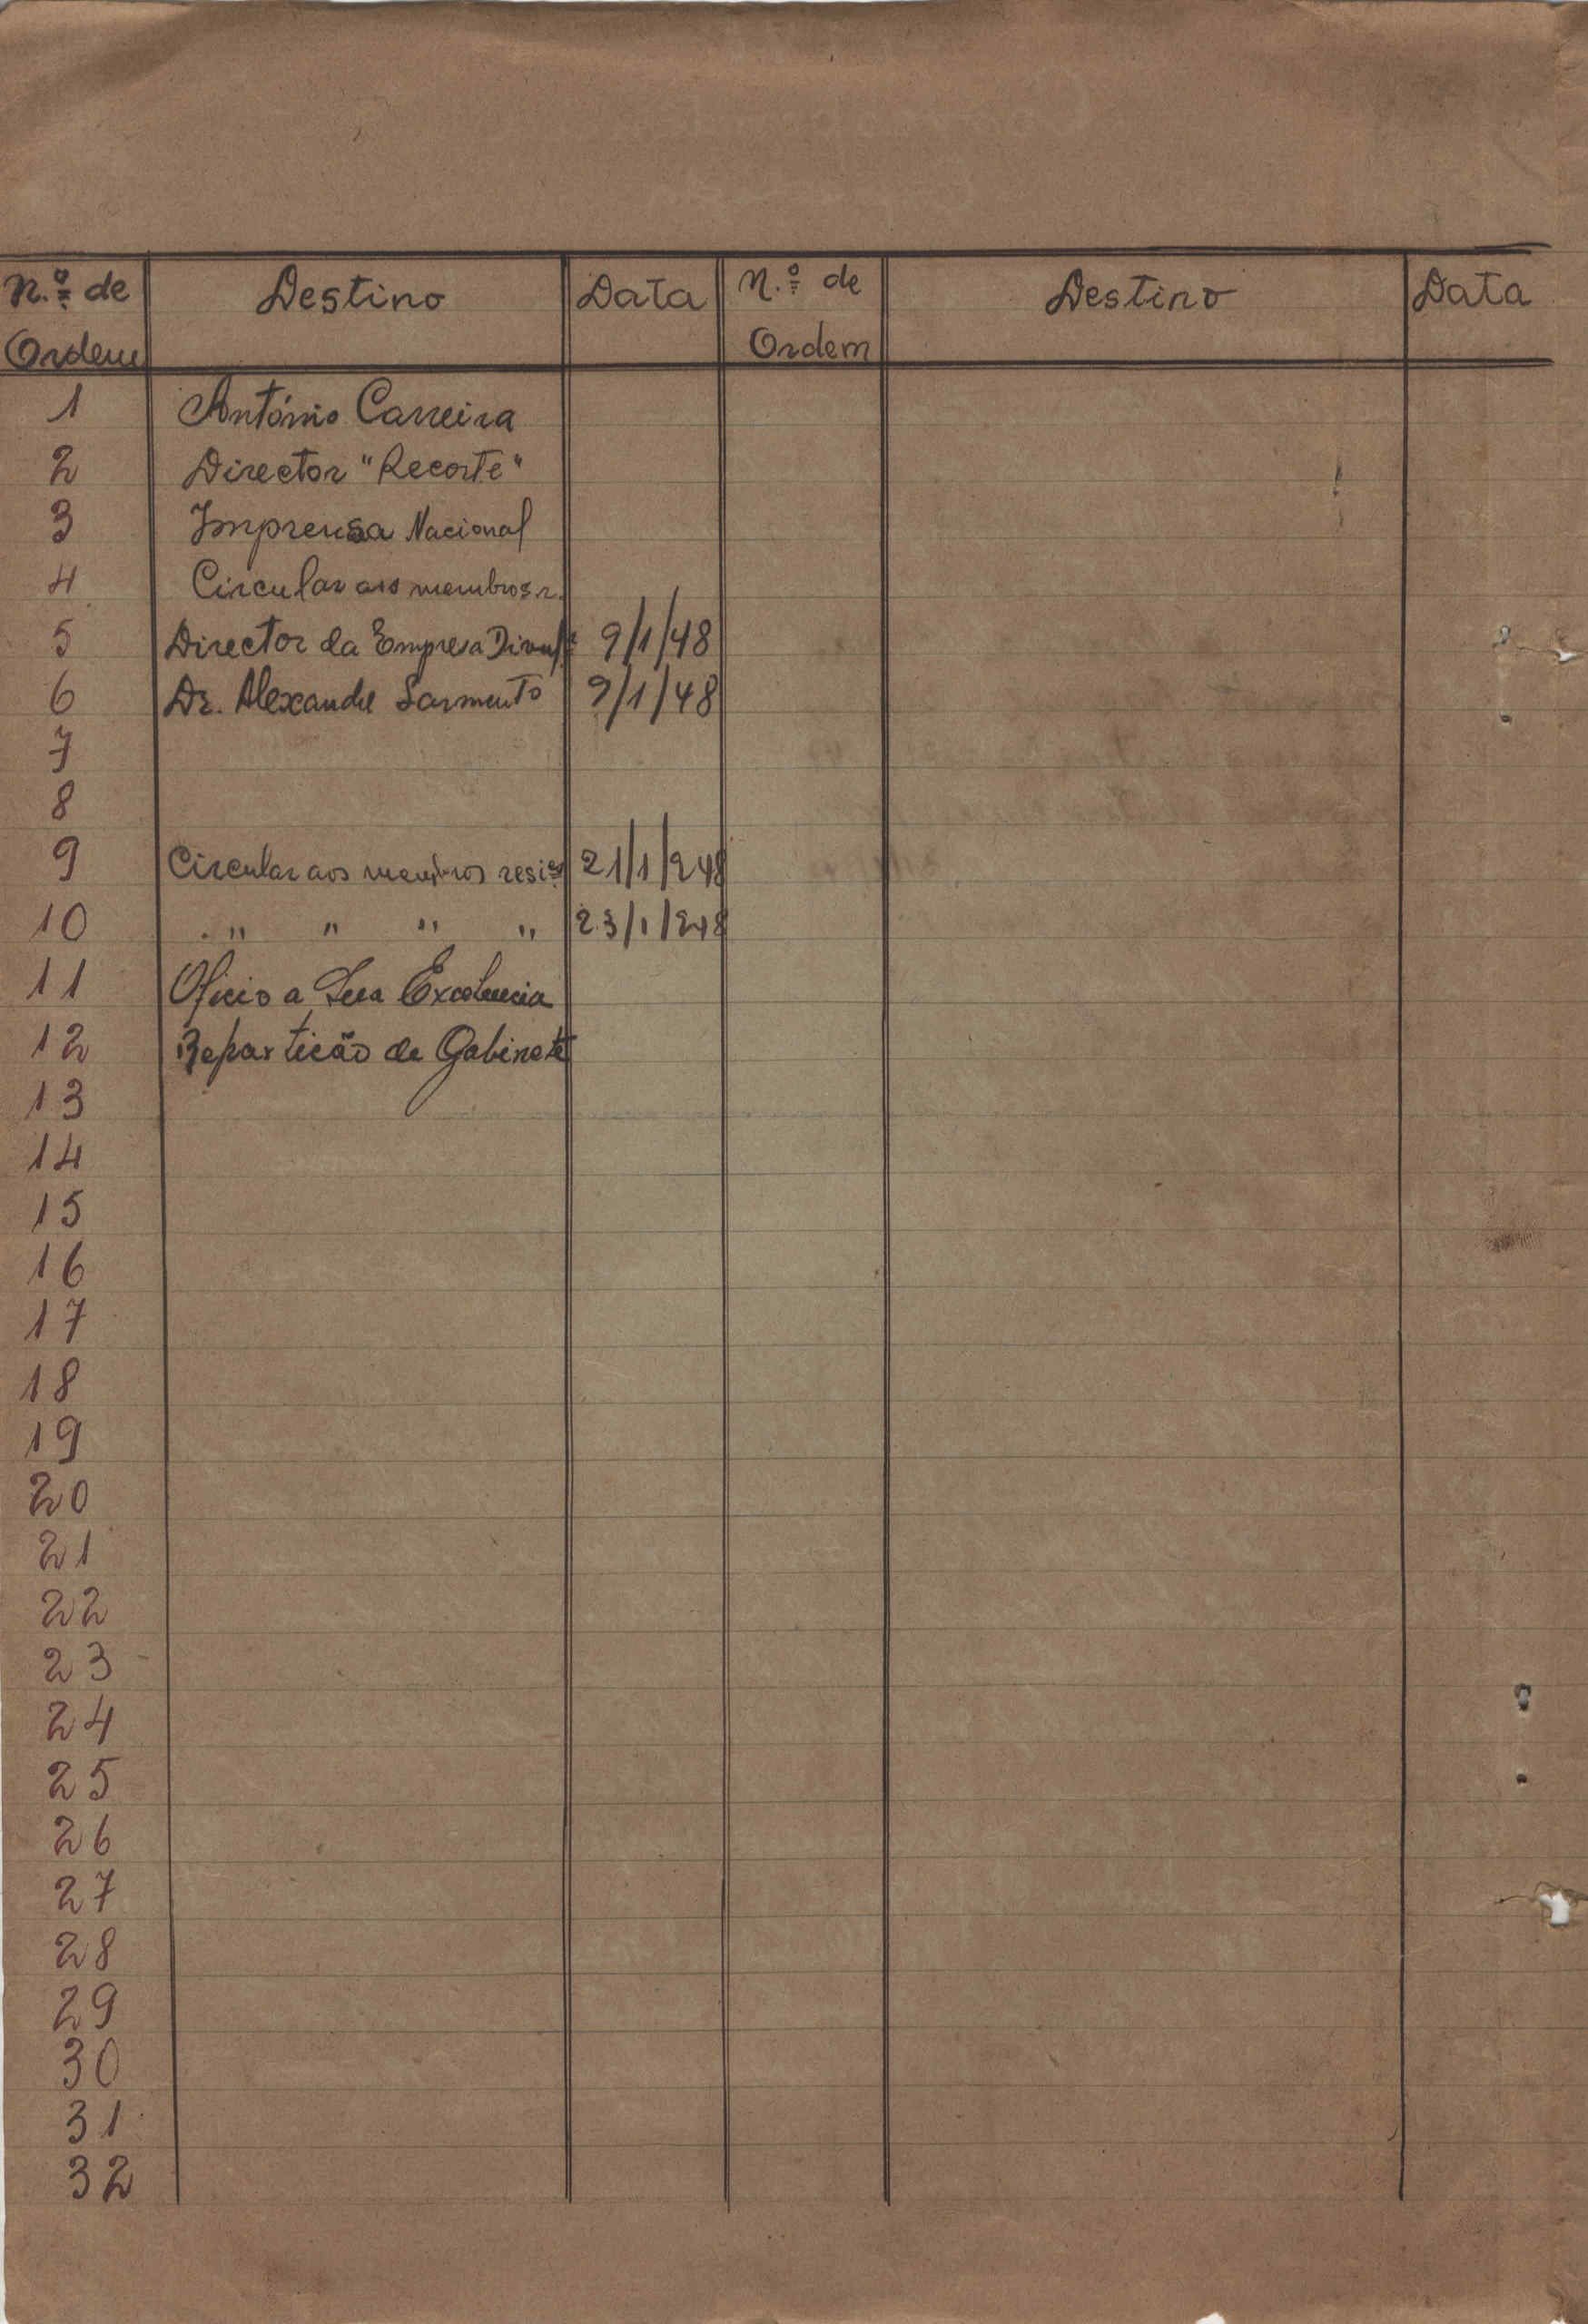 N.º de Ordem Destino Data N.º de Ordem Destino Data
1 António Carreira
2 Director "Recorte"
3 Imprensa Nacional
4 Circular aos membros r.
5 Director da Empresa 9/1/48
6 Dr. Alexandre Sarmento 9/1/48
7
8
9 Circular aos membros resi.es 21/1/948
10 " " " " 23/1/948
11 Oficio a Sua Excelencia
12 Repartição de Gabinete
13
14
15
16
17
18
19
20
21
22
23
24
25
26
27
28
29
30
31
32